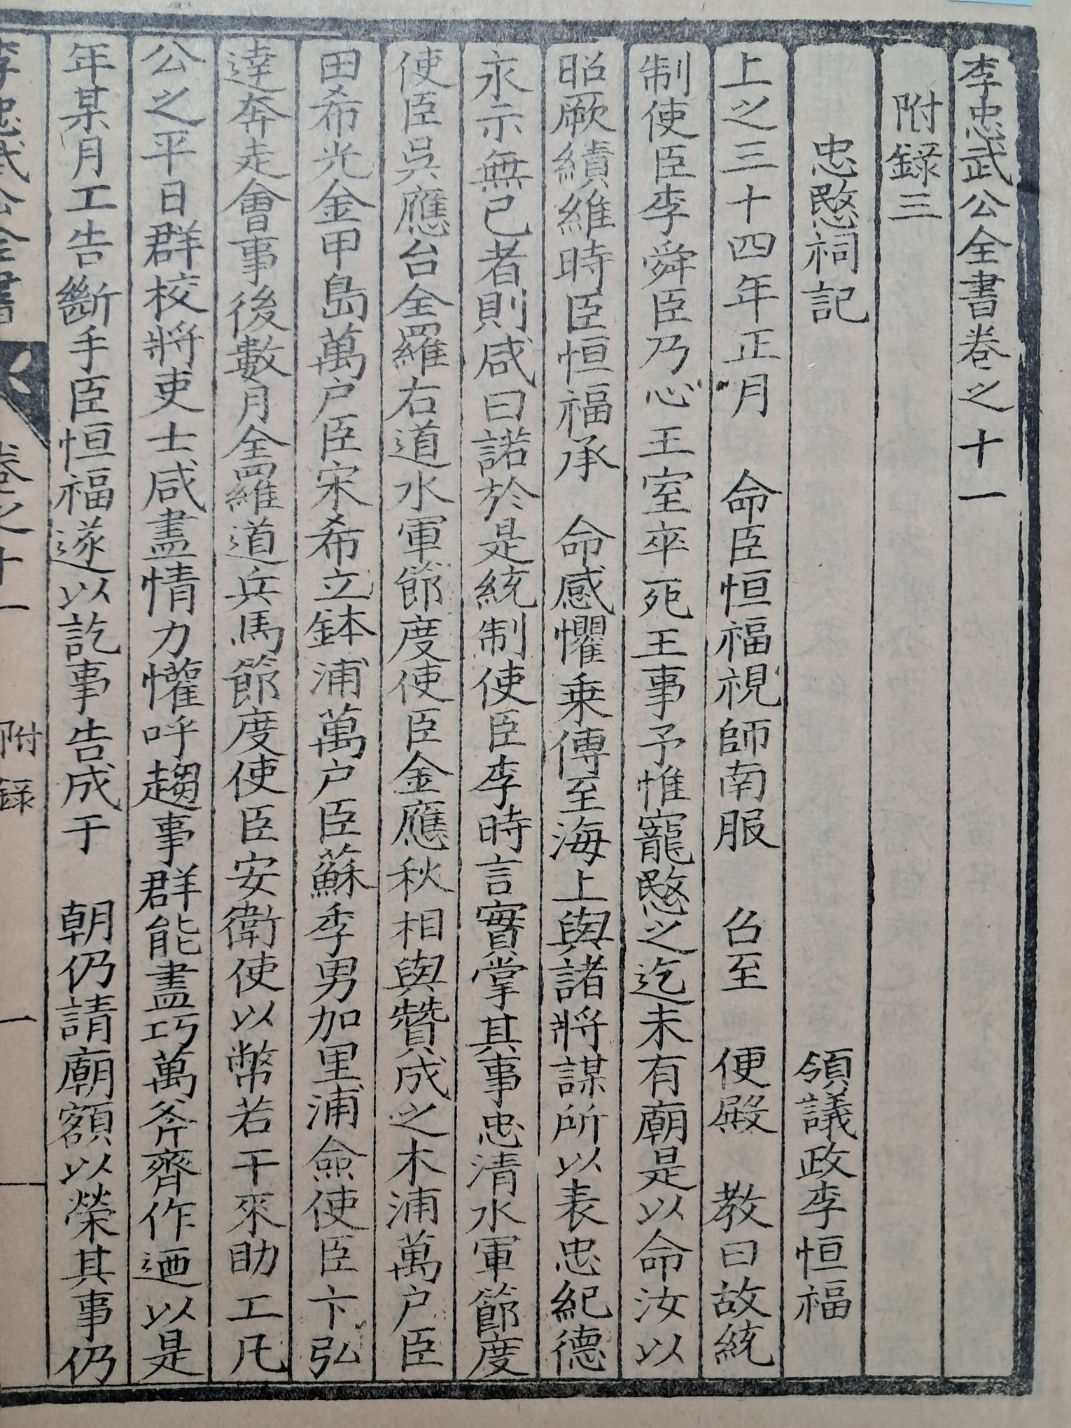 李忠武公全書卷之十一
附錄三
忠愍祠記
領議政李恒福
上之三十四年正月 命臣恒福視師南服 召至 便殿 教曰故統
制使臣李舜臣乃心王室卒死王事予惟寵愍之迄未有廟是以命汝以
昭厥績維時臣恒福承 命感懼乗傳至海上與諸將謀所以表忠紀德
永示無已者則咸曰諾於是統制使臣李時言實掌其事忠清水軍節度
使臣吳應台全羅右道水軍節度使臣金應秋相與贊成之木浦萬户臣
田希光金甲島萬户臣宋希立鉢浦萬户臣蘇季男加里浦僉使臣卞弘
達奔走會事後數月全羅道兵馬節度使臣安衛使以幣若干來助工凡
公之平日群校將吏士咸盡情力懽呼趨事群能盡巧萬斧齊作迺以是
年某月工告斷手臣恒福遂以訖事告成于 朝仍請廟額以榮其事仍
李忠武公全書 卷之十一 附錄 一